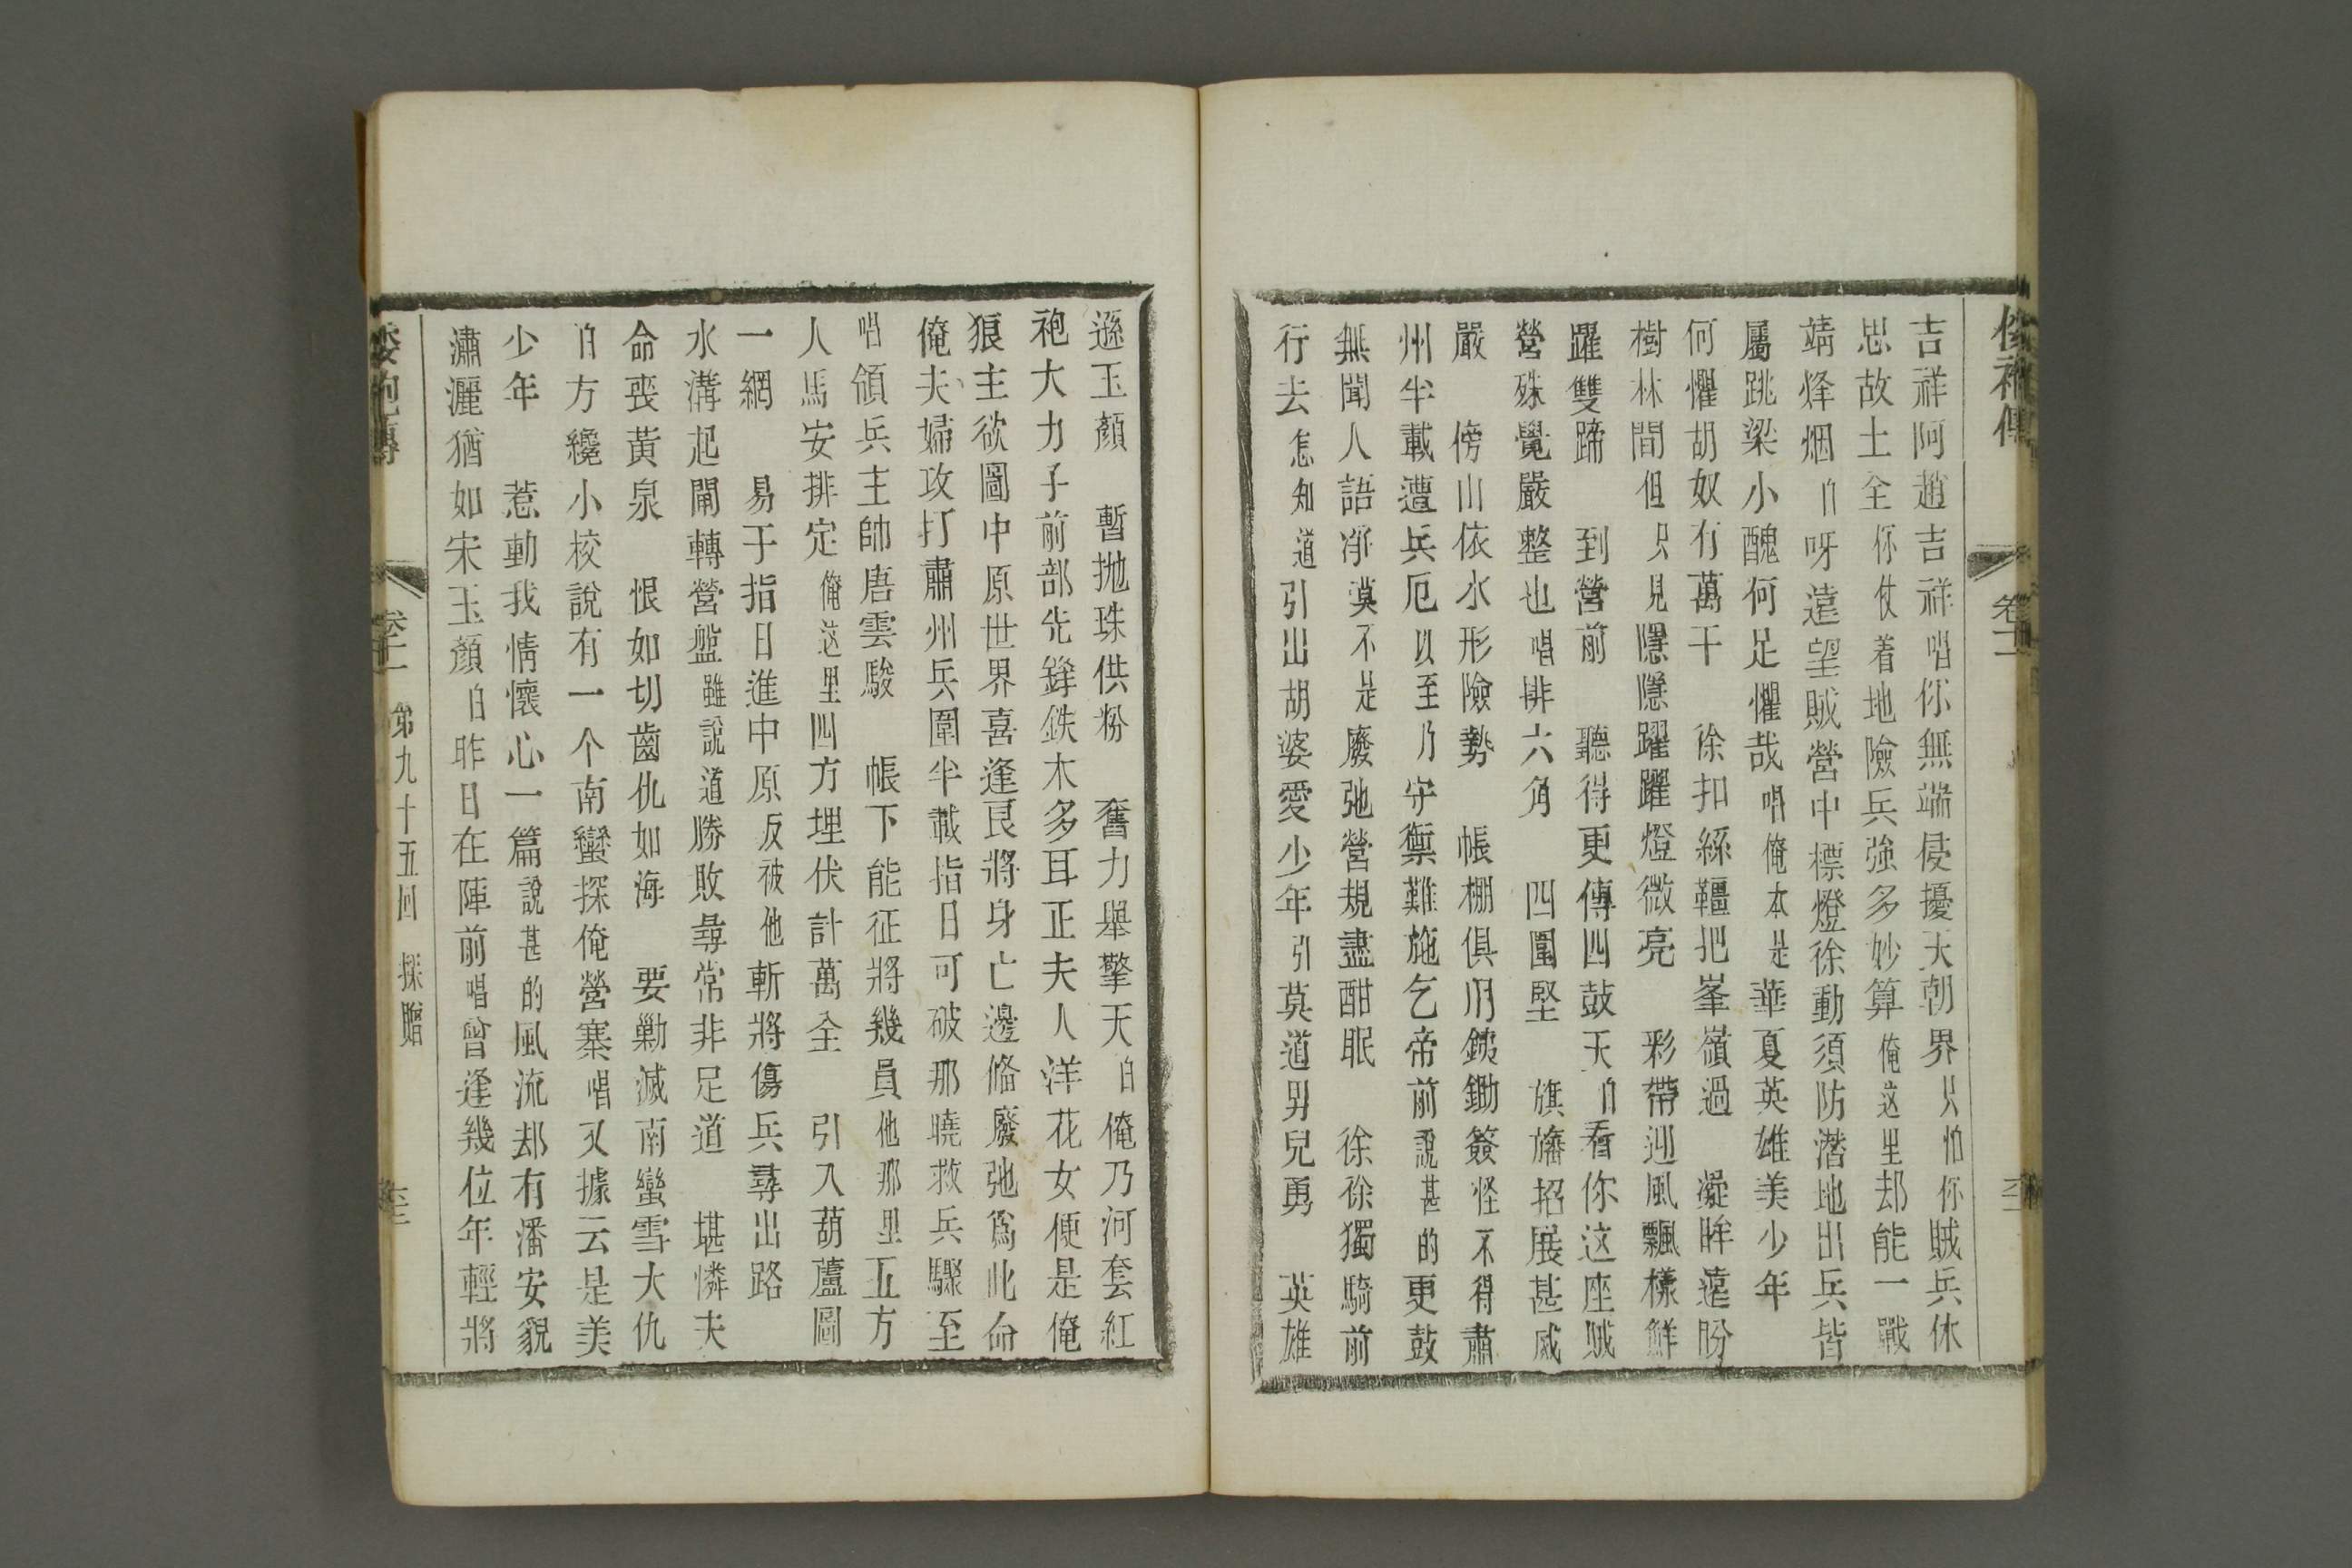 吉祥阿趙吉祥唱你無端侵擾天朝界只怕你賊兵休
思故土全你仗着地險兵強多妙算俺这里却能一戰
靖烽烟白呀遠望賊營中標燈徐動須防潛地出兵皆
屬跳梁小醜何足懼哉唱俺本是華夏英雄美少年
何懼胡奴有萬千　徐扣絲韁把峯嶺過　凝眸遠盼
樹林間但只見隱隱躍躍燈微亮　彩帶迎風飄樣鮮
躍雙蹄　到營前　聽得更傳四鼓天白看你这座賊
營殊覺嚴整也唱排六角　四圍堅　旗旛招展甚威
嚴　傍山依水形險勢　帳棚俱用鉄鋤簽怪不得肅
州半載遭兵厄以至乃守禦難施乞帝前說甚的更鼓
無聞人語淨莫不是廢弛營規盡酣眠　徐徐獨騎前
行去怎知道引出胡婆愛少年引莫道男兒勇　英雄
遜玉顏　暫抛珠供粉　奮力舉擎天白俺乃河套紅
袍大力子前部先鋒鉄木多耳正夫人洋花女便是俺
狼主欲圖中原世界喜逢艮將身亡邊俻廢弛爲此命
俺夫婦攻打肅州兵圍半載指日可破那曉救兵驟至
唱領兵主帥唐雲駿　帳下能征將幾員他那里五方
人馬安排定俺这里四方埋伏計萬全　引入葫蘆圖
一網　易于指日進中原反被他斬將傷兵尋出路
水溝起閘轉營盤雖說道勝敗尋常非足道　堪憐夫
命喪黃泉　恨如切齒仇如海　要勦滅南蠻雪大仇
白方纔小校說有一个南蠻探俺營寨唱又據云是美
少年　惹動我情懷心一篇說甚的風流却有潘安貌
瀟灑猶如宋玉顏白昨日在陣前唱曾逢幾位年輕將
倭袍傳　卷十一　第九十五回　採贈